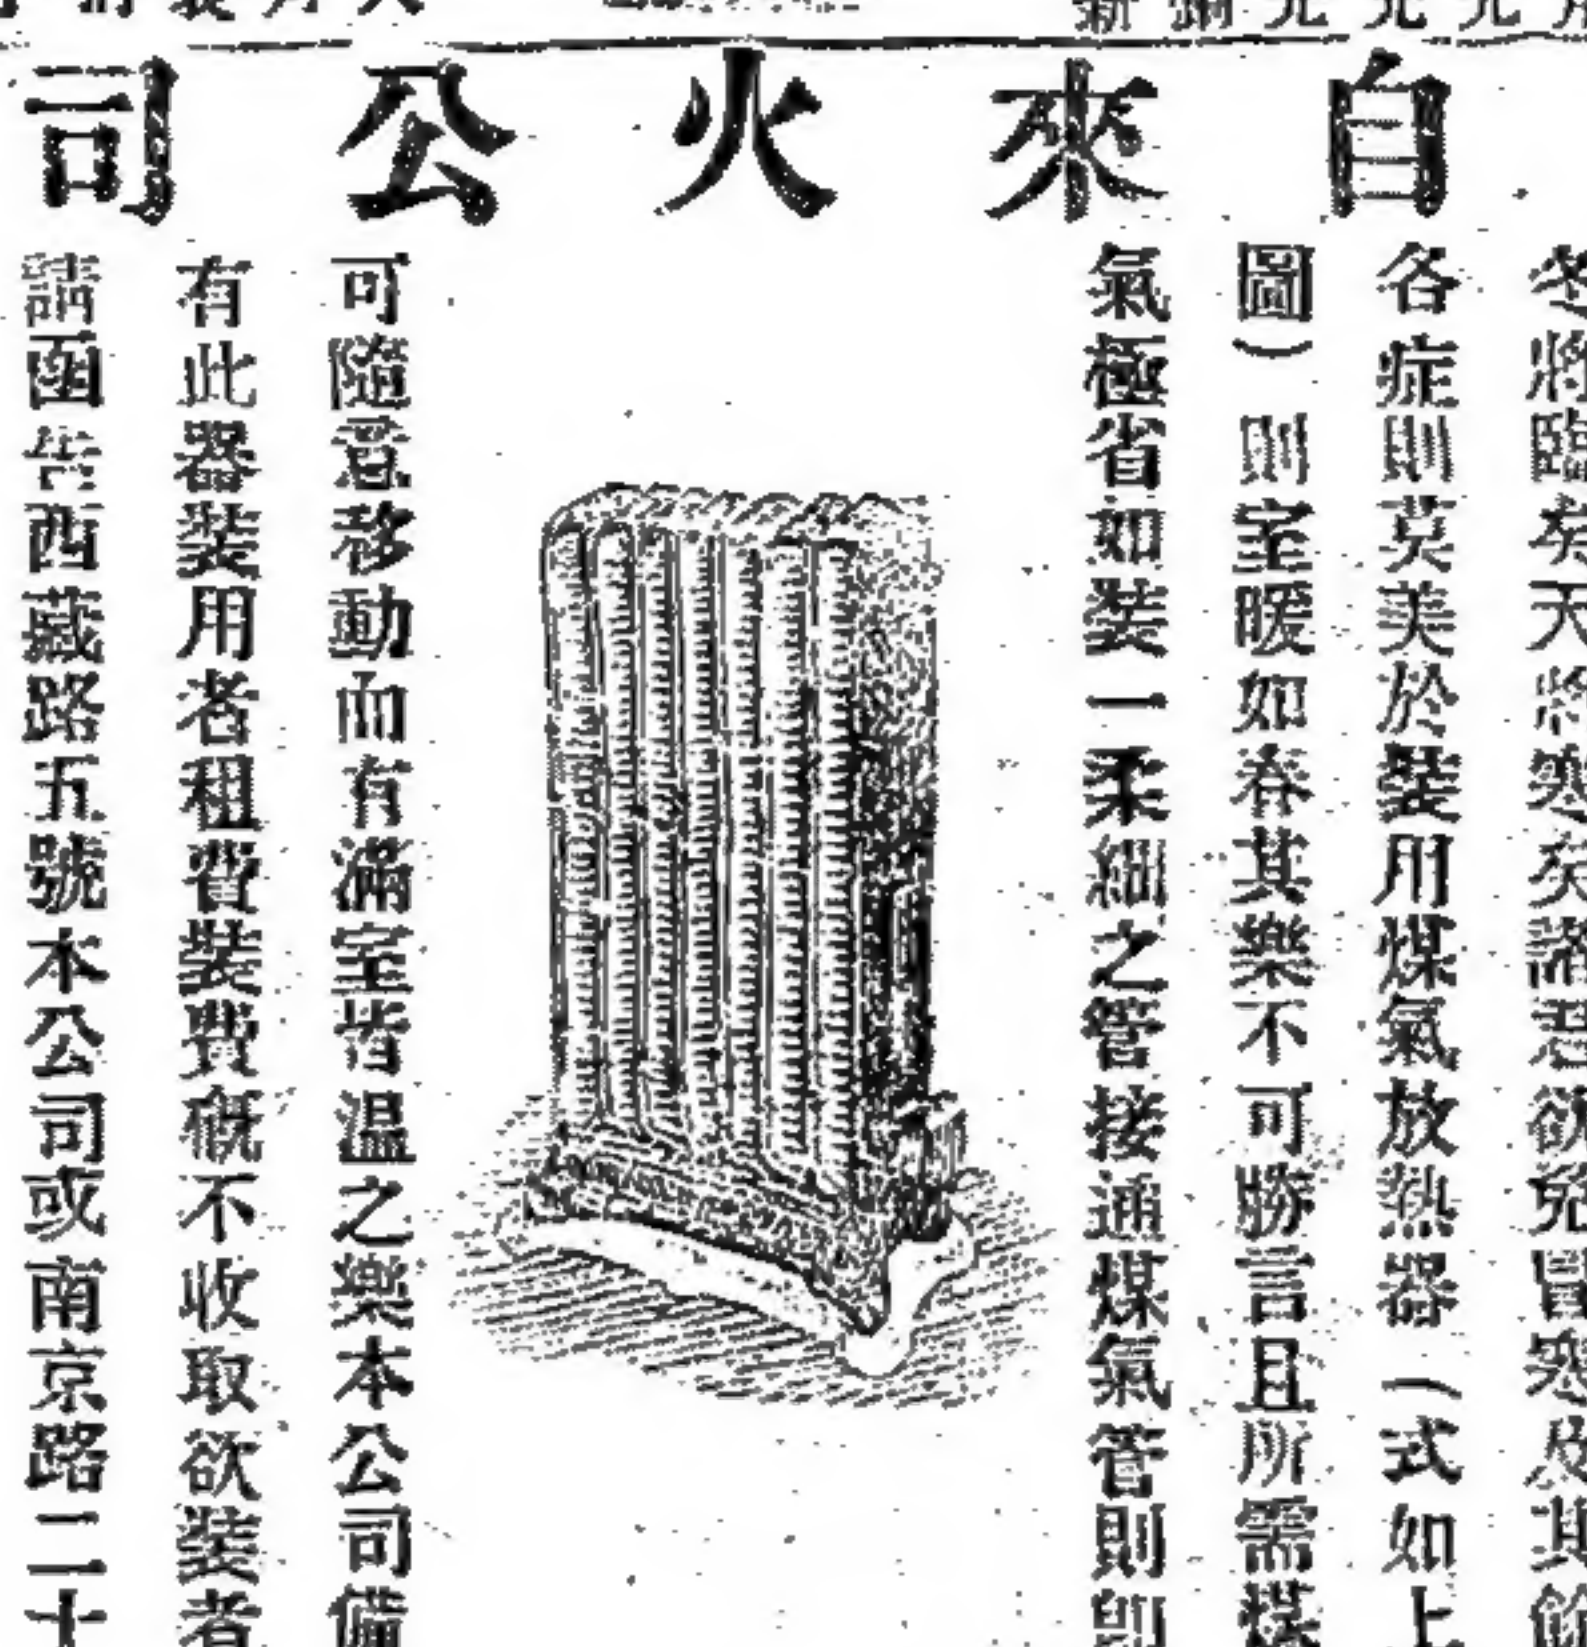 自來火公司
冬將臨矣天將寒矣諸君欲免冒寒及其餘
各症則莫美於裝用煤氣放熱器(式如上
圖)則室暖如春其樂不可勝言且所需煤
氣極省如裝一柔細之管接通煤氣管則卽
可隨意移動而有滿室皆温之樂本公司備
有此器裝用者租費裝費概不收取欲裝者
請函告西藏路五號本公司或南京路二十